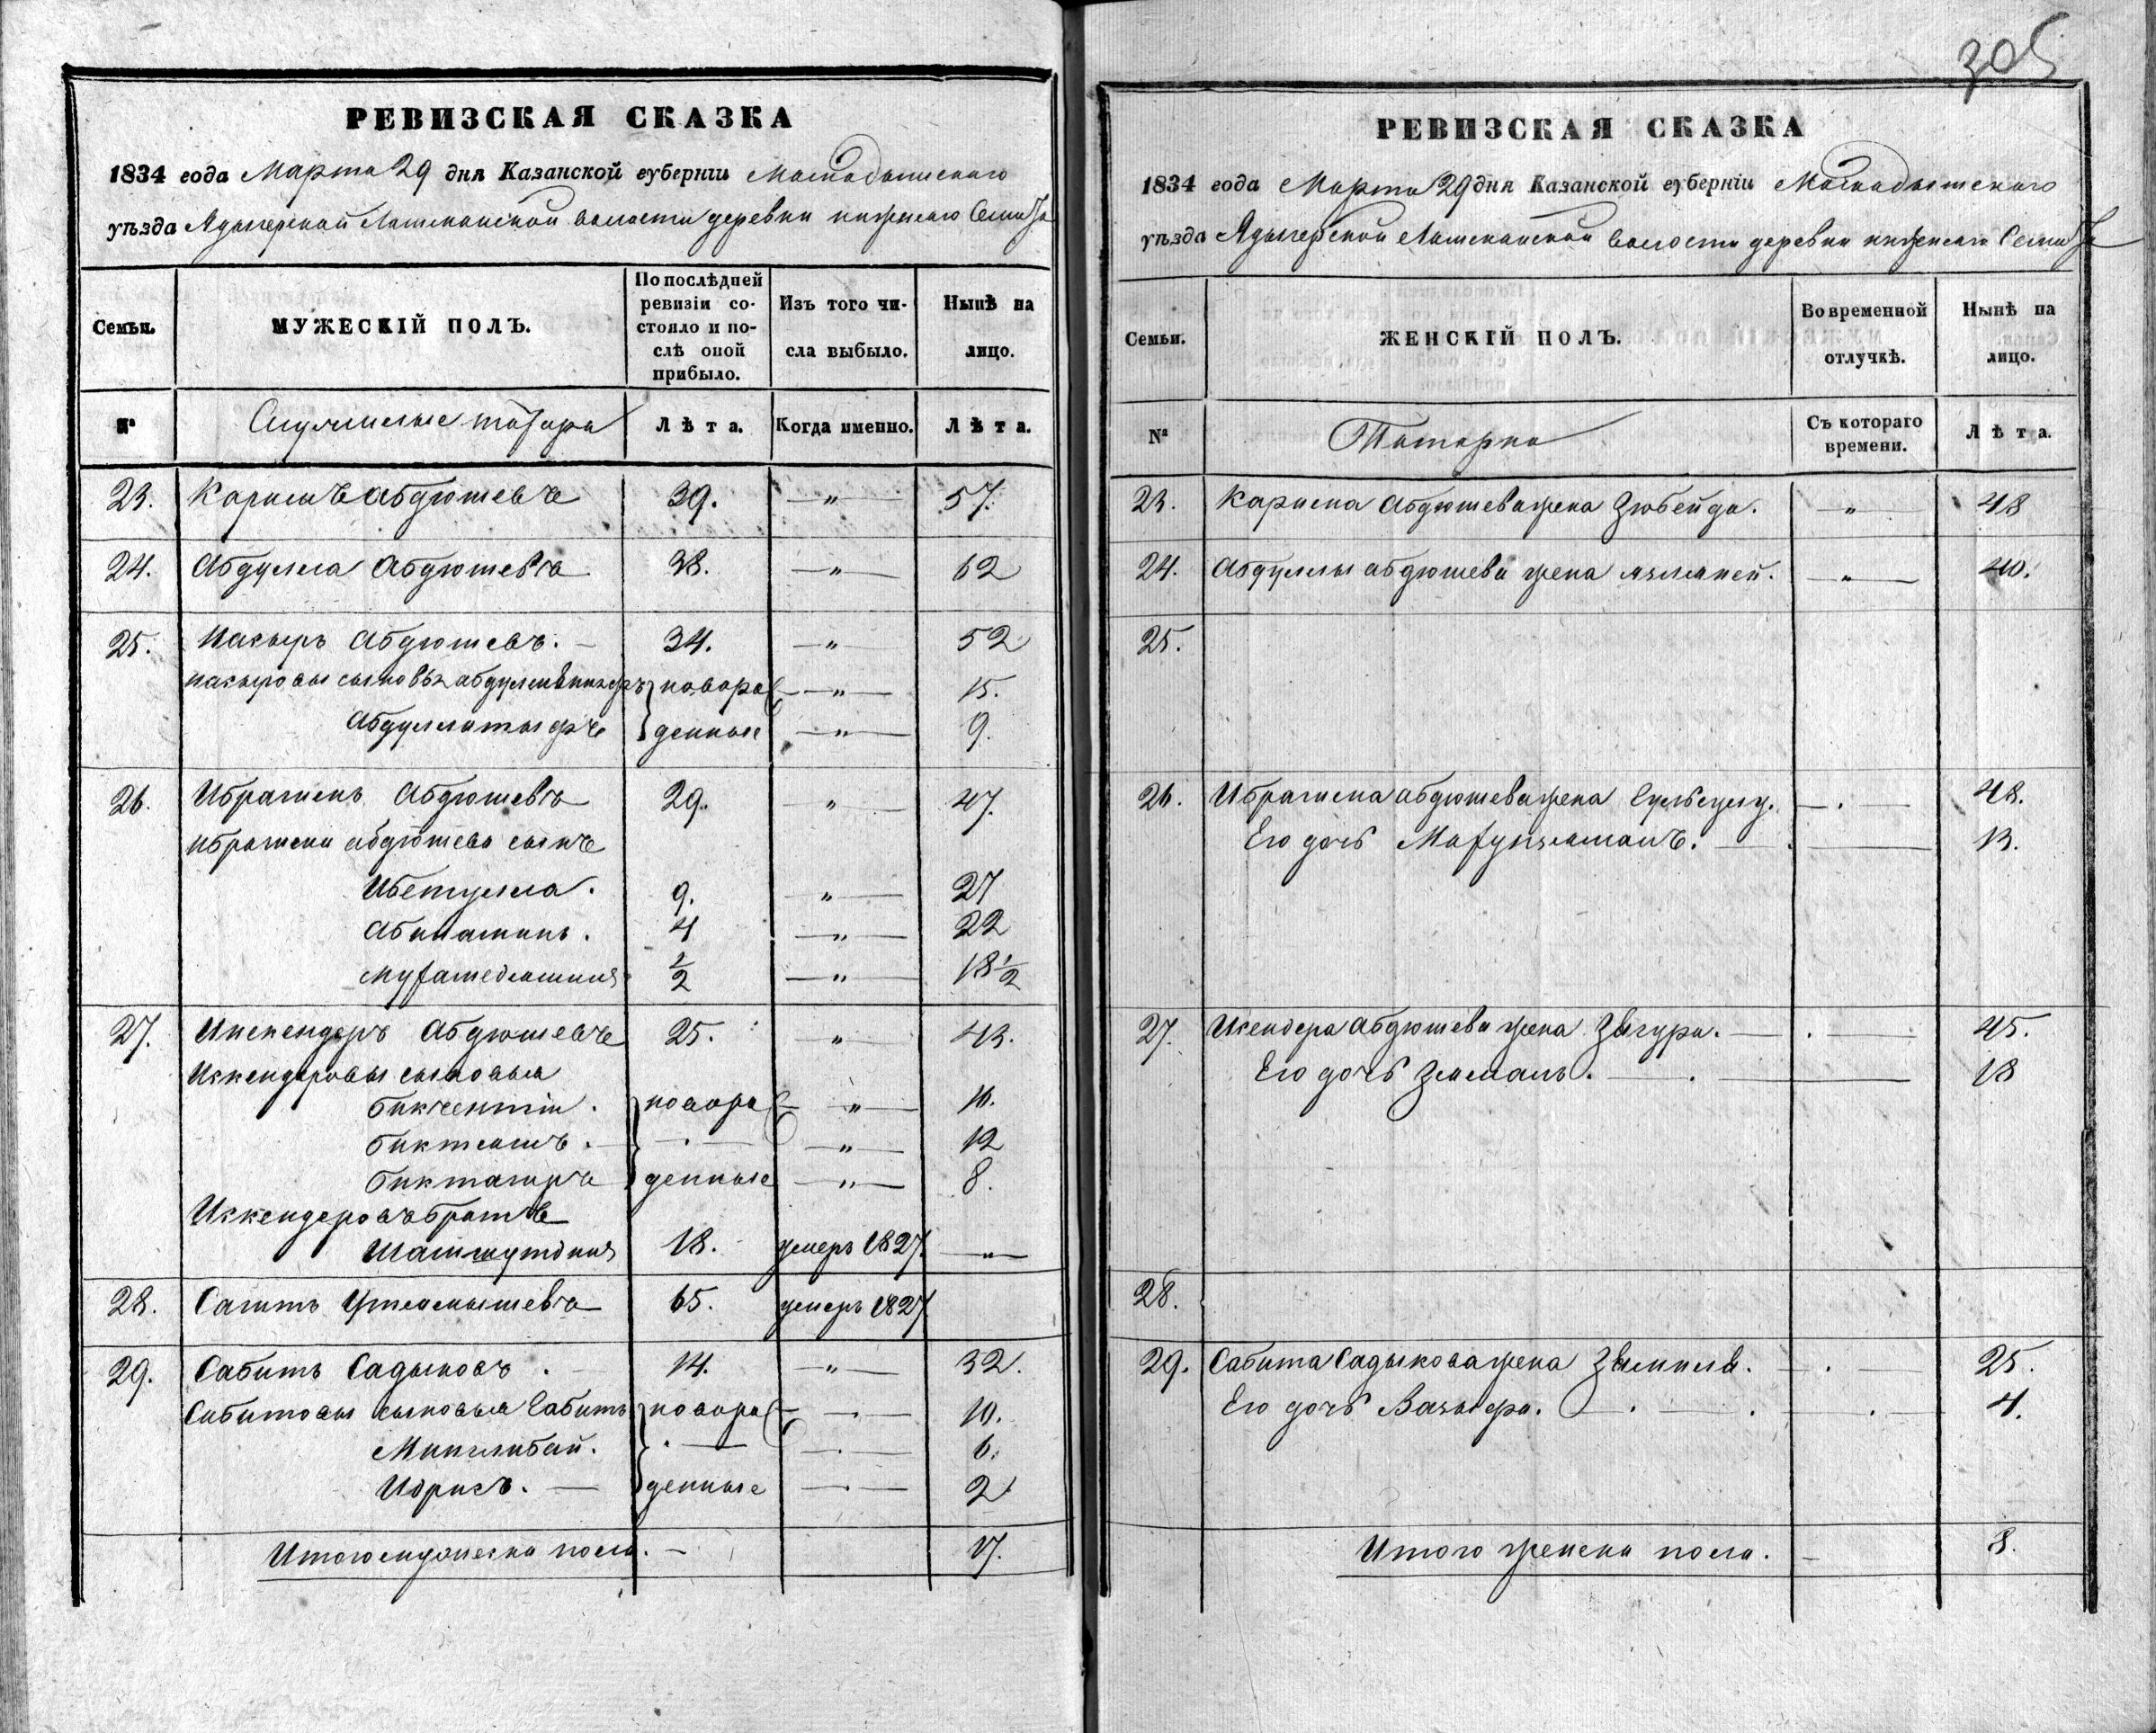 305
РЕВИЗСКАЯ СКАЗКА
1834 года Марта 29 дня Казанской губерніи Мамадышскаго
уѣзда волости деревни нижнего
Семьи.
МУЖЕСКІЙ ПОЛЪ.
По послѣдней ревизіи состояло и послѣ оной прибыло.
Изъ того числа выбыло.
Нынѣ на лицо.
№
Служилые татара
Лѣта.
Когда именно.
Лѣта.
23. Каримъ Абдюшевъ 39. — " — 57.
24. Абдулла Абдюшевъ 38. — " — 62
25. Насыръ Абдюшевъ. — 34. — " — 52
насыровы сыновья новоро — " — 15.
Абдуллатыфъ денные — " — 9.
26. Ибрагимъ Абдюшевъ 29. — " — 47.
ибрагима абдюшева сынъ
Ибетулла. 9. " — 27
4 — " — 22
1/2 — " — 18 1/2
27. Искендеръ Абдюшевъ 25. — " — 43.
Искендеровы сыновья
новоро — " — 16.
— . — — " — 12
Биктагиръ денные — " — 8.
Искендеровъ братъ
18. умеръ 1827. — " —
28. Сагитъ Утямышевъ 65. умеръ 1827
29. Сабитъ Садыковъ. 14. — " — 32.
Сабитовы сыновья новоро — . — 10.
Минглибай. . — — . — 6.
Идрисъ. — денные — . — 2
Итого мужеска пола. — 17.
РЕВИЗСКАЯ СКАЗКА
1834 года Марта 29 дня Казанской губерніи Мамадышскаго
уѣзда волости деревни нижнего
Семьи.
ЖЕНСКІЙ ПОЛЪ.
Во временной отлучкѣ.
Нынѣ на лицо.
№
Татарки
Съ котораго времени.
Лѣта.
23. Карима Абдюшева жена Зюбейда. — " — 48
24. Абдуллы абдюшева жена — " — 40.
25.
26. Ибрагима абдюшева жена — . — 48.
Его дочь 13.
27. Искендера Абдюшева жена Загура. — . — 45.
Его дочь 18
28.
29. Сабита Садыкова жена — . — 25.
Его дочь — . — 4.
Итого женска пола. — 8.